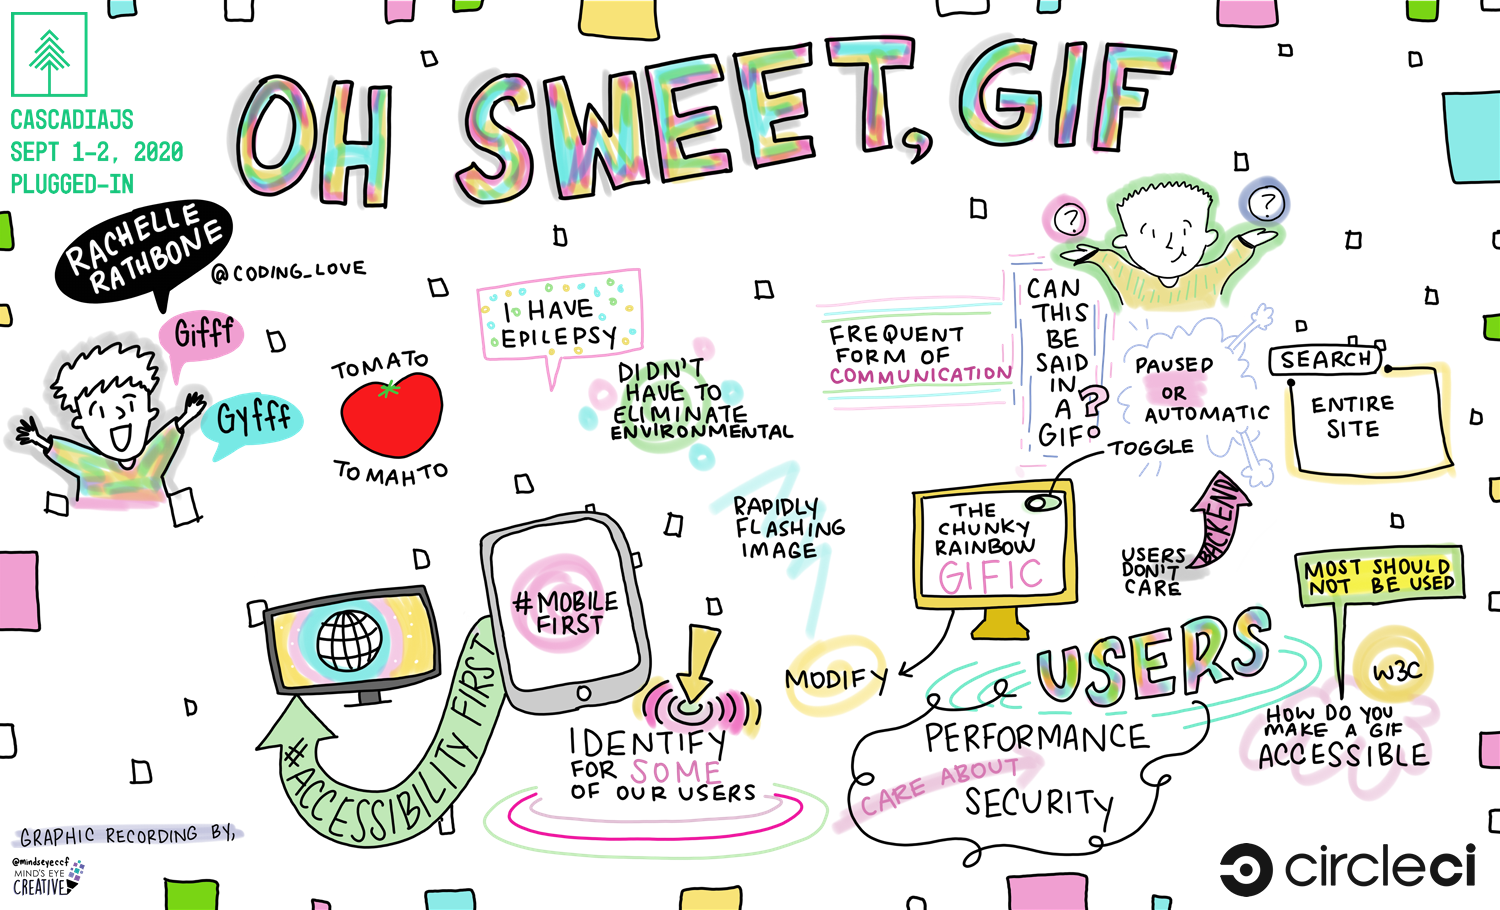 CASCADIAJS
SEPT 1-2, 2020
PLUGGED-IN
OH SWEET, GIF
RACHELLE
RATHBONE
@CODING_LOVE
Gifff
Gyfff
TOMATO
TOMAHTO
I HAVE
EPILEPSY
DIDN'T
HAVE TO
ELIMINATE
ENVIRONMENTAL
RAPIDLY
FLASHING
IMAGE
FREQUENT
FORM OF
COMMUNICATION
CAN
THIS
BE
SAID
IN
A
GIF?
?
?
PAUSED
OR
AUTOMATIC
TOGGLE
SEARCH
ENTIRE
SITE
THE
CHUNKY
RAINBOW
GIFIC
MODIFY
BACKEND
USERS
DON'T
CARE
MOST SHOULD
NOT BE USED
W3C
HOW DO YOU
MAKE A GIF
ACCESSIBLE
#MOBILE
FIRST
#ACCESSIBILITY FIRST
IDENTIFY
FOR SOME
OF OUR USERS
USERS
PERFORMANCE
CARE ABOUT
SECURITY
GRAPHIC RECORDING BY,
@mindseyeccf
MIND'S EYE
CREATIVE
circleci